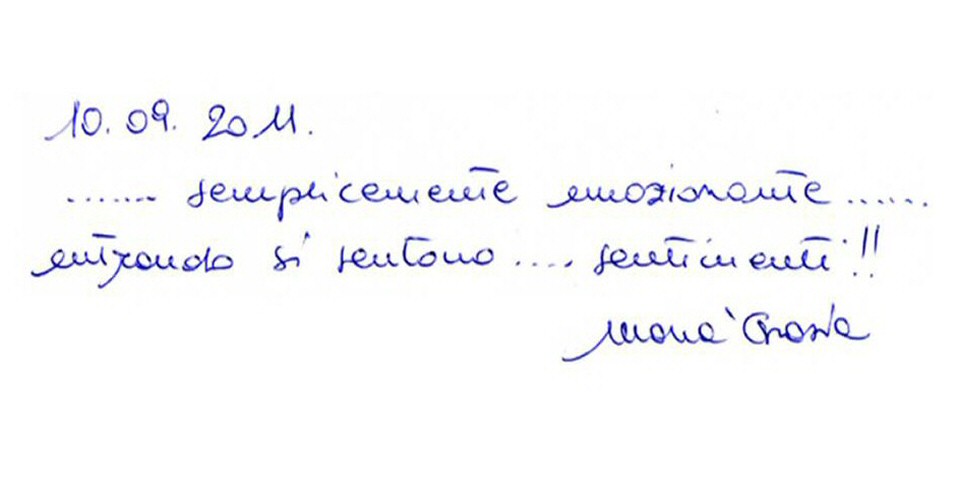 10.09.2011.
....... semplicemente emozionante ......
entrando si sentono .... sentimenti!!
Maria Grazia